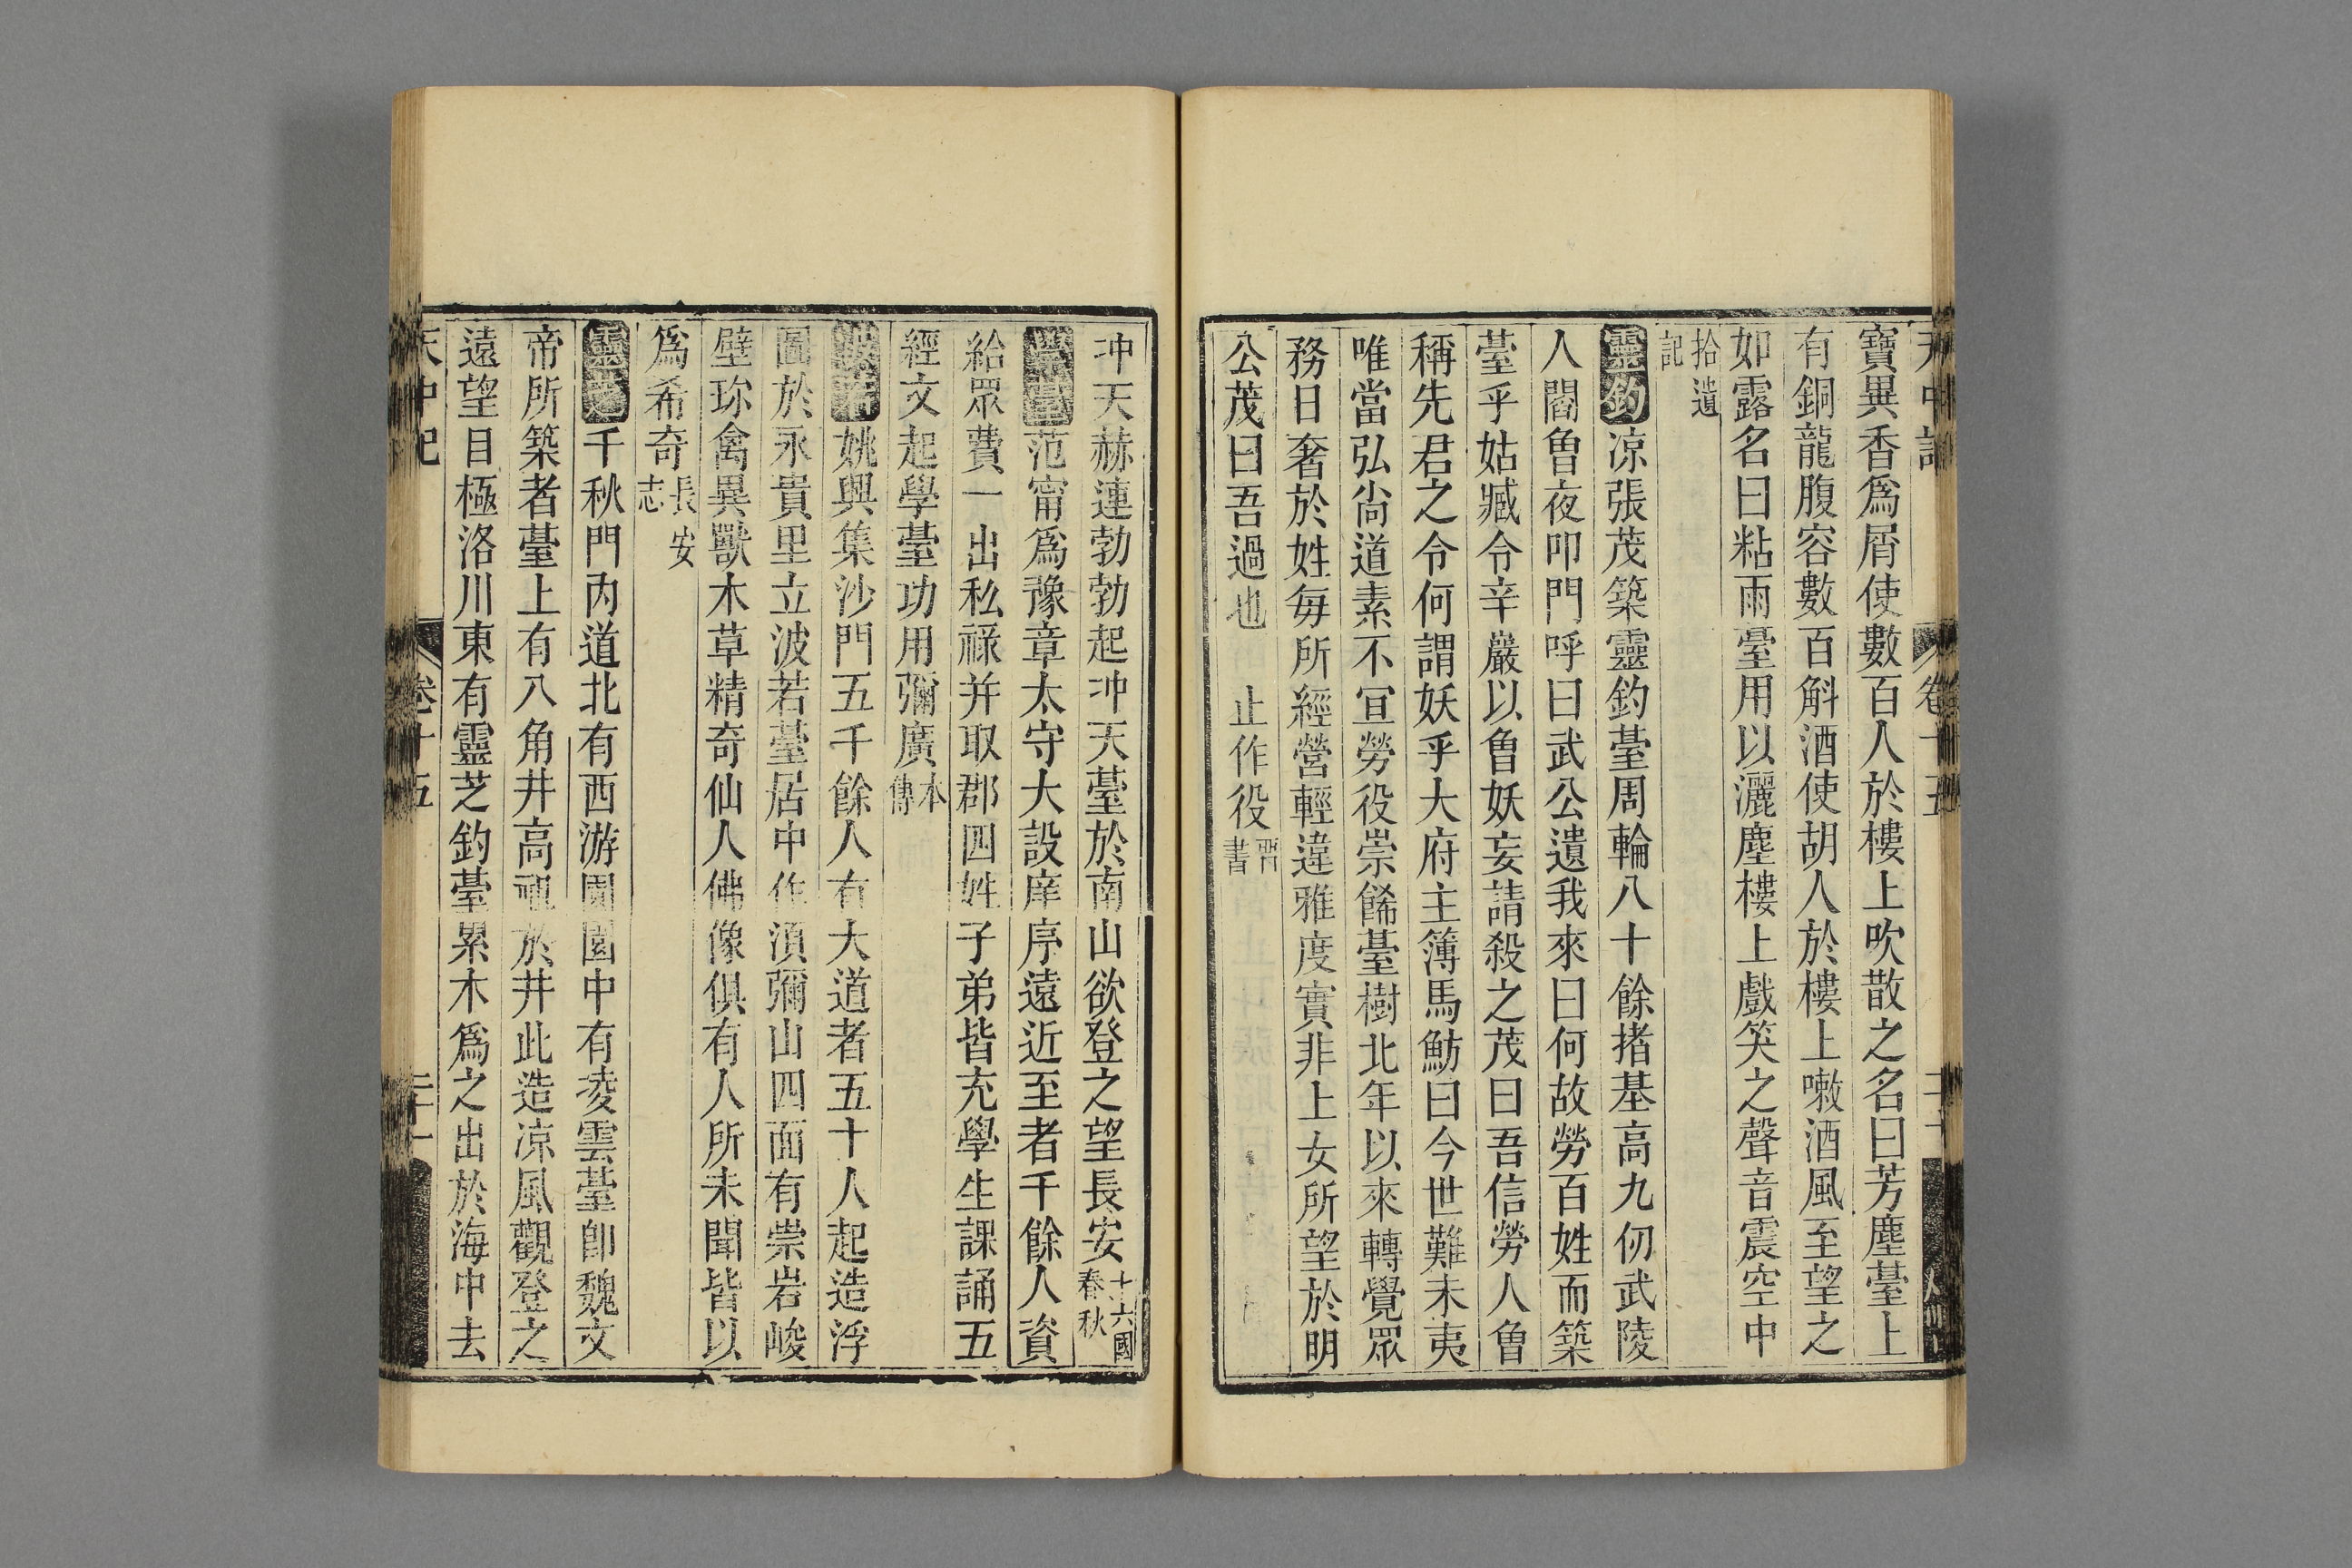 寶異香爲屑使數百人於樓上吹散之名曰芳塵臺上
有銅龍腹容數百斛酒使胡人於樓上嗽酒風至望之
如露名曰粘雨臺用以灑塵樓上戲笑之聲音震空中
拾遺
記
靈釣凉張茂築靈釣臺周輪八十餘措基高九仞武陵
人閻曾夜叩門呼曰武公遺我來曰何故勞百姓而築
臺乎姑臧令辛巖以曾妖妄請殺之茂曰吾信勞人曾
稱先君之令何謂妖乎大府主簿馬魴曰今世難未夷
唯當弘尙道素不宜勞役崇餙臺樹北年以來轉覺眾
務日奢於姓每所經營輕違雅度實非上女所望於明
公茂曰吾過也 止作役晉
書
冲天赫連勃勃起冲天臺於南山欲登之望長安十六國
春秋
學臺范甯爲豫章太守大設庠序遠近至者千餘人資
給眾費一出私祿并取郡四姓子弟皆充學生課誦五
經文起學臺功用彌廣本
傳
波若姚興集沙門五千餘人有大道者五十人起造浮
圖於永貴里立波若臺居中作須彌山四面有崇岩峻
壁珎禽異獸木草精奇仙人佛像俱有人所未聞皆以
爲希奇長安
志
靈芝千秋門內道北有西游園園中有凌雲臺卽魏文
帝所築者臺上有八角井高祖於井此造凉風觀登之
遠望目極洛川東有靈芝釣臺累木爲之出於海中去
天中記 卷十五